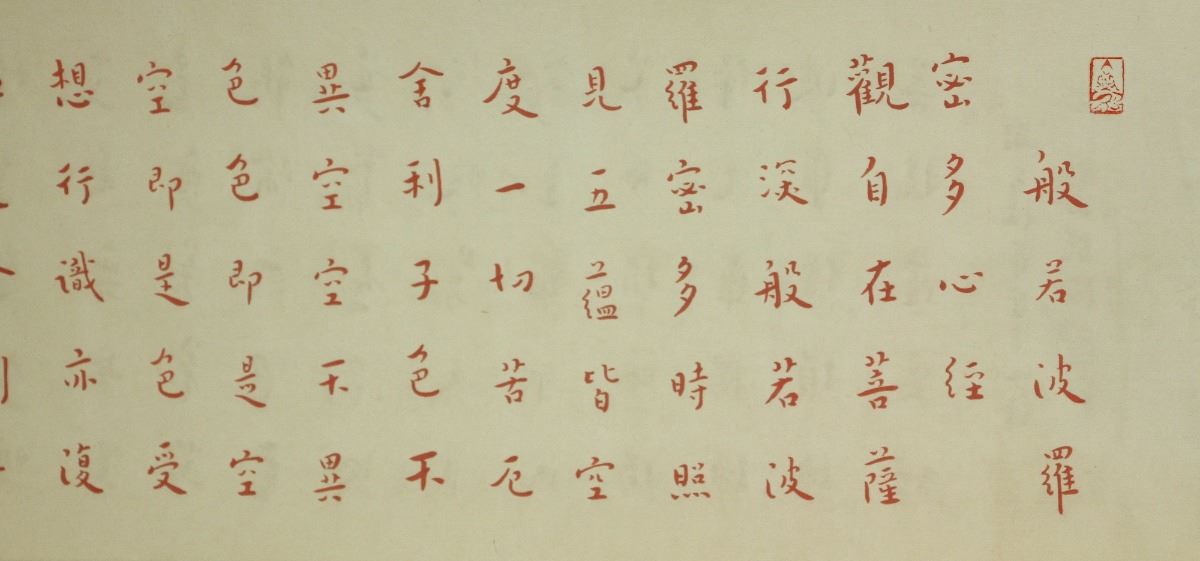 般若波羅
密多心經
觀自在菩薩
行深般若波
羅密多時照
見五蘊皆空
度一切苦厄
舍利子色不
異空空不異
色色即是空
空即是色受
想行識亦復